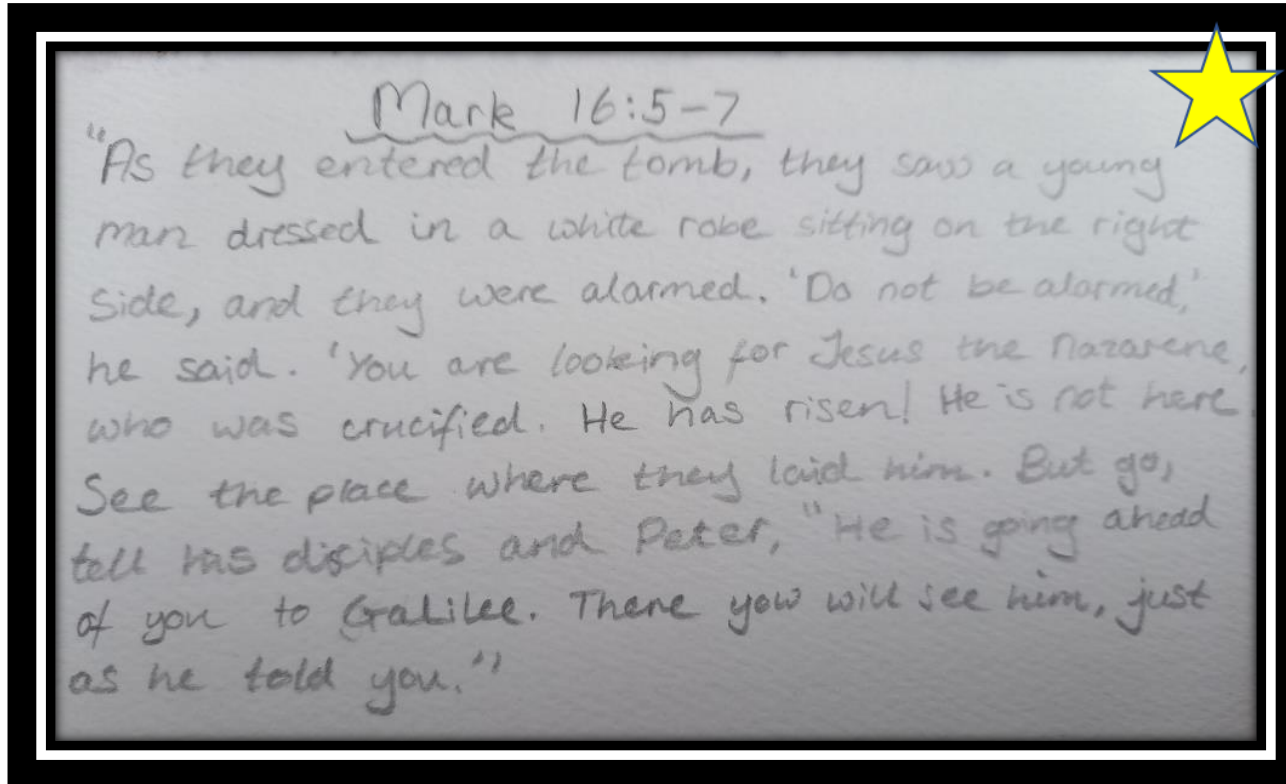 Mark 16:5-7
"As they entered the tomb, they saw a young
man dressed in a white robe sitting on the right
side, and they were alarmed. 'Do not be alarmed,'
he said. 'You are looking for Jesus the Nazarene,
who was crucified. He has risen! He is not here.
See the place where they laid him. But go,
tell his disciples and Peter, "He is going ahead
of you to Galilee. There you will see him, just
as he told you."'